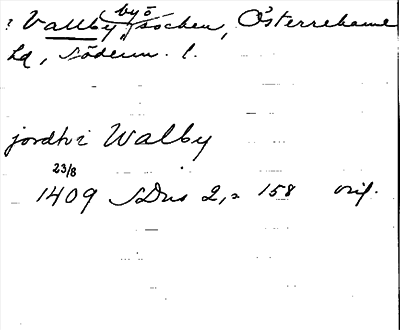 : Vallby byö socken, Österrekarne
hd, Söderm. l.
jordh i Walby
23/8
1409 SDns 2, = 158 orig.